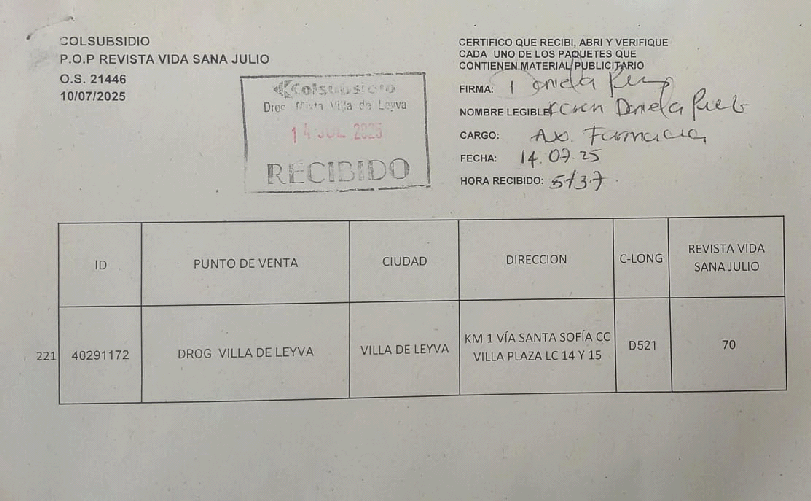 COLSUBSIDIO
P.O.P REVISTA VIDA SANA JULIO
O.S. 21446
10/07/2025
Colsubsidio
Drog Mixta Villa de Leyva
14 JUL 2025
RECIBIDO
CERTIFICO QUE RECIBI, ABRI Y VERIFIQUE
CADA UNO DE LOS PAQUETES QUE
CONTIENEN MATERIAL PUBLICITARIO
FIRMA:
NOMBRE LEGIBLE: Karen Daniela
CARGO: Ax. Farmacia
FECHA: 14.07.25
HORA RECIBIDO:
ID PUNTO DE VENTA CIUDAD DIRECCION C-LONG REVISTA VIDA
SANA JULIO
221 40291172 DROG VILLA DE LEYVA VILLA DE LEYVA KM 1 VÍA SANTA SOFÍA CC D521 70
VILLA PLAZA LC 14 Y 15